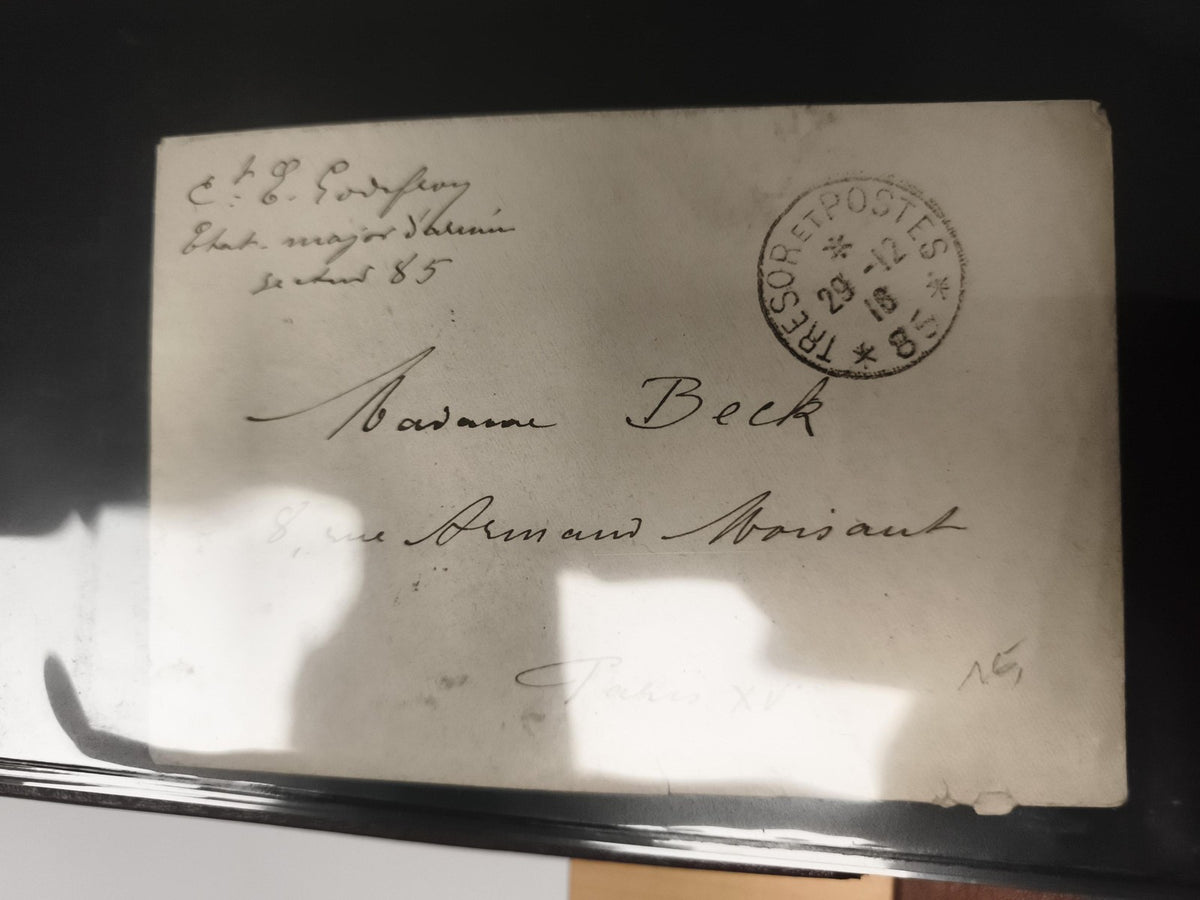 Ct. E. Godefroy
Etat-major d'armée
secteur 85
TRESOR ET POSTES * 85 *
* 29 -12 18
Madame Beck
8, rue Armand Moisant
Paris XV